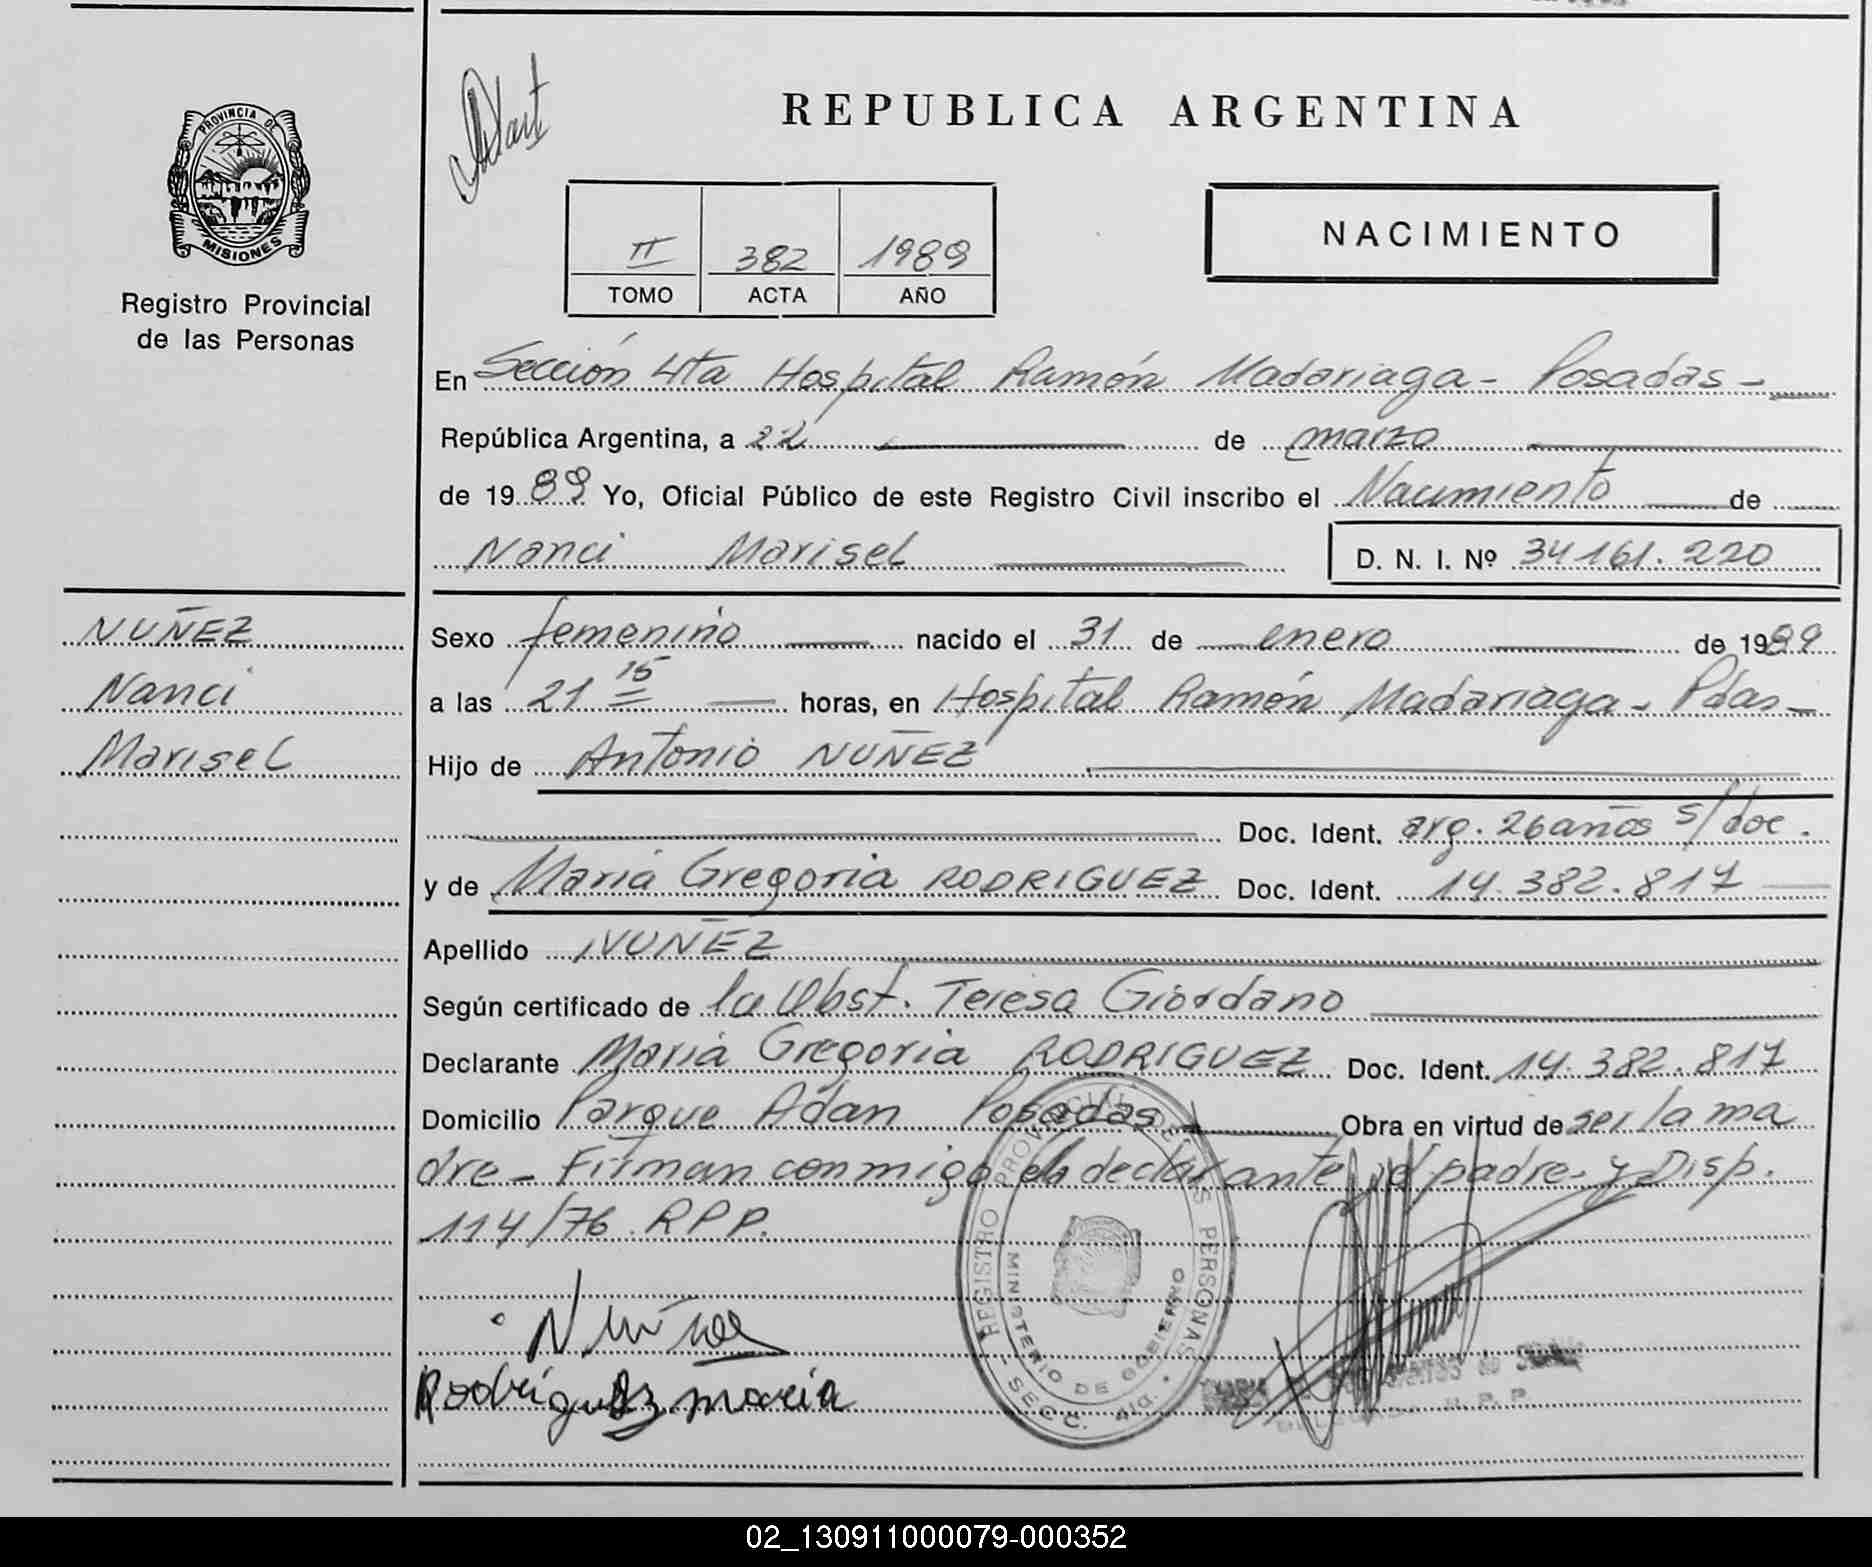 PROVINCIA DE
MISIONES
Registro Provincial
de las Personas
REPUBLICA ARGENTINA
NACIMIENTO
II 382 1989
TOMO ACTA AÑO
En Sección 4ta Hospital Ramón Madariaga - Posadas -
República Argentina, a 22 de marzo
de 1989 Yo, Oficial Público de este Registro Civil inscribo el Nacimiento de
Nanci Marisel D. N. I. Nº 34161.220
NUÑEZ
Nanci
Marisel
Sexo femenino nacido el 31 de enero de 1989
a las 21 15 horas, en Hospital Ramón Madariaga - Pdas -
Hijo de Antonio NUÑEZ
Doc. Ident. arg. 26 años s/doc.
y de Maria Gregoria RODRIGUEZ Doc. Ident. 14.382.817
Apellido NUÑEZ
Según certificado de la Obst. Teresa Giordano
Declarante Maria Gregoria RODRIGUEZ Doc. Ident. 14.382.817
Domicilio Parque Adan Posadas Obra en virtud de ser la ma
dre - Firman conmigo la declarante, el padre y Disp.
114/76 RPP.
Nuñez
Rodriguez maria
REGISTRO PROVINCIAL DE LAS PERSONAS
MINISTERIO DE GOBIERNO
SECC. 4ta.
R. P. P.
02_130911000079-000352